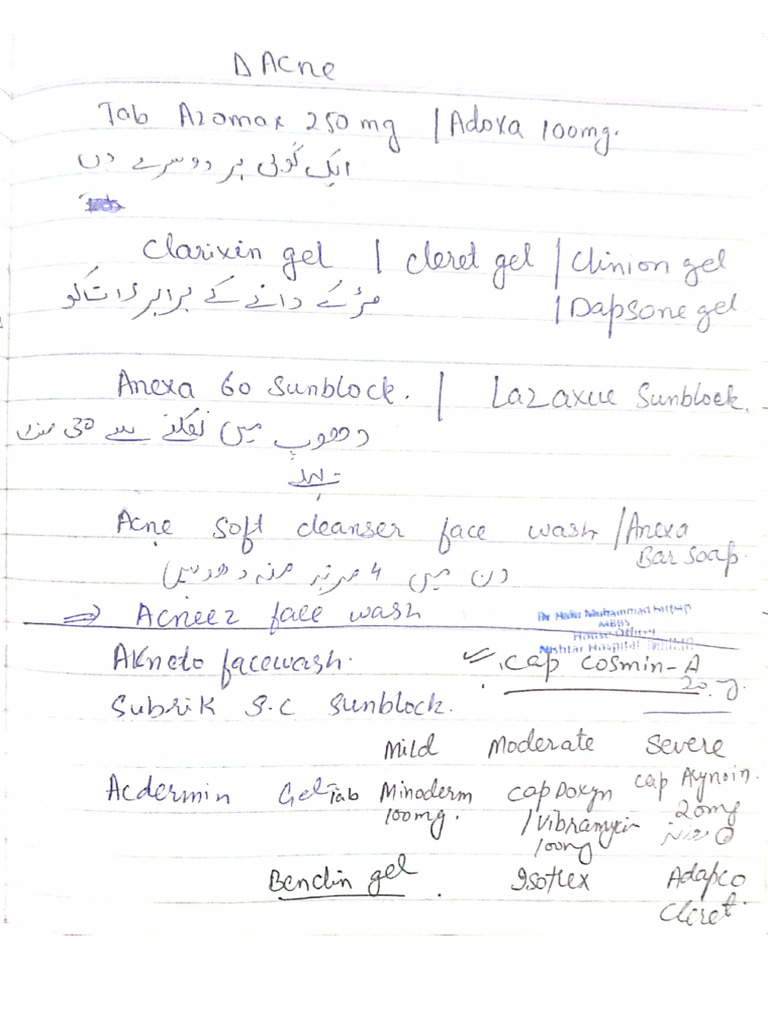 Δ Acne
Tab Azomax 250 mg / Adoxa 100mg.
ایک گولی ہر دوسرے دن
Clarixin gel / Cleret gel / Clinion gel
مٹر کے دانے کے برابر رات کو
/ Dapsone gel
Anexa 60 Sunblock. / Lazaxue Sunblock.
دھوپ میں نکلنے سے 30 منٹ
Acne soft cleanser face wash / Anexa
Bar soap.
دن میں 4 مرتبہ منہ دھوئیں
⇒ Acneez face wash
MBBS
House Officer
Nishtar Hospital
Akneto facewash.
cap Cosmin-A
20
Subrik S.C Sunblock.
Mild Moderate Severe
Acdermin Gel Tab Minoderm cap Doxyn cap Aynoin.
100mg. / Vibramycin 20mg
100mg
Benclin gel Isotlex Adapco
Cleret.